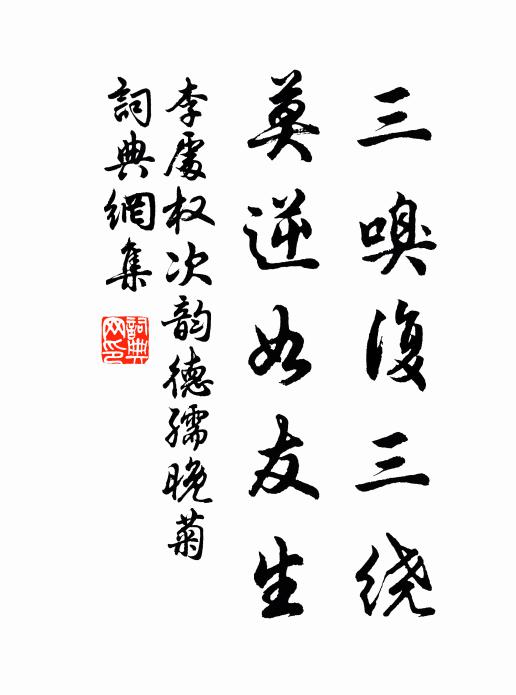 三嗅復三绕
莫逆如友生
李處权次韵德孺晚菊
詞典網集
詞典
网印